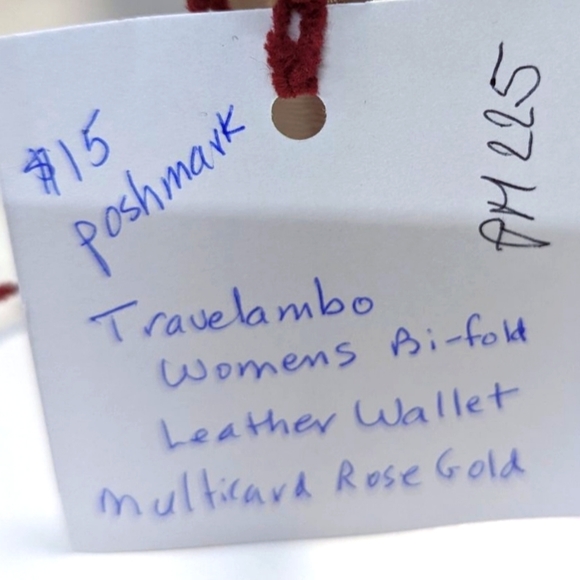 $15
poshmark
PM 225
Travelambo
Womens Bi-fold
Leather Wallet
Multicard Rose Gold